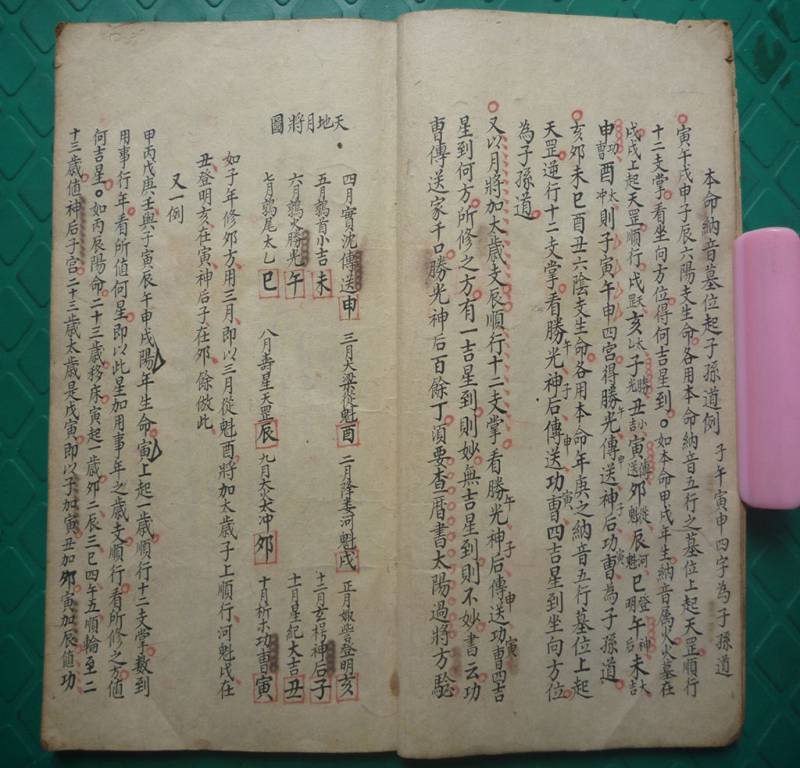 本命納音墓位起子孫道例 子午寅申四字為子孫道
寅午戌申子辰六陽支生命各用本命納音五行之墓位上起天罡順行
十二支掌看坐向方位得何吉星到如本命甲戌年生納音属火火墓在
戌戌上起天罡順行戌亥太乙子勝光丑小吉寅傳送卯從魁辰河魁巳登明午神后未大吉
申功曹酉太冲則子寅午申四宮得勝光傳送神后功曹為子孫道
亥卯未巳酉丑六陰支生命各用本命年庚之納音五行墓位上起
天罡逆行十二支掌看勝光午神后子傳送申功曹寅四吉星到坐向方位
為子孫道
又以月將加太歲支辰順行十二支掌看勝光午神后子傳送申功曹寅四吉
星到何方所修之方有一吉星到則妙無吉星到則不妙書云功
曹傳送家千口勝光神后百餘丁須要查曆書太陽過將方驗
天地月將圖
四月實沈傳送申 三月大梁從魁酉 二月降婁河魁戌 正月娵訾登明亥
五月鶉首小吉未 十二月玄枵神后子
六月鶉火勝光午 十一月星紀大吉丑
七月鶉尾太乙巳 八月壽星天罡辰 九月大火太冲卯 十月析木功曹寅
如子年修卯方用三月即以三月從魁酉將加太歲子上順行河魁戌在
丑登明亥在寅神后子在卯餘倣此
又一例
甲丙戊庚壬與子寅辰午申戌陽年生命寅上起一歲順行十二支掌數到
用事行年看所值何星即以此星加用事年之歲支順行看所修之方值
何吉星如丙辰陽命二十三歲移床寅起一歲卯二辰三巳四午五順輪至二
十三歲值神后子宮二十三歲太歲是戊寅即以子加寅丑加卯寅加辰值功